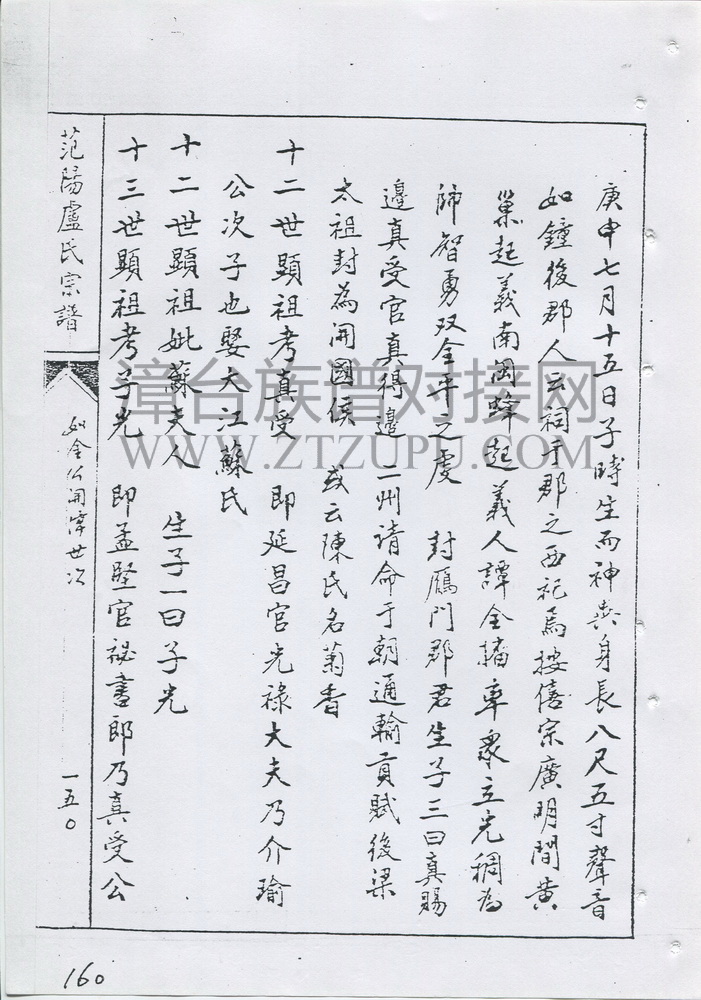 庚申七月十五日子時生而神央身長八尺五寸聲音
如鐘後郡人云祠于郡之西祀焉按僖宗廣明間黃
巢起義南閩蜂起義人譚全播率衆立光稠為
師智勇双全平之虔 封雁門郡君生子三曰真賜
邊真受官真得邊 二州請命于朝通輸貢賦後梁
太祖封為開國侯 或云陳氏名菊香
十二世顯祖考真受 即延昌官光祿大夫乃介瑜
公次子也娶大江蘇氏
十二世顯祖妣蘇夫人 生子一曰子光
十三世顯祖考子光 即孟堅官祕書郎乃真受公
范陽盧氏宗譜
如金公開肇世次
一五〇
160
漳台族谱对接网
WWW.ZTZUPU.COM